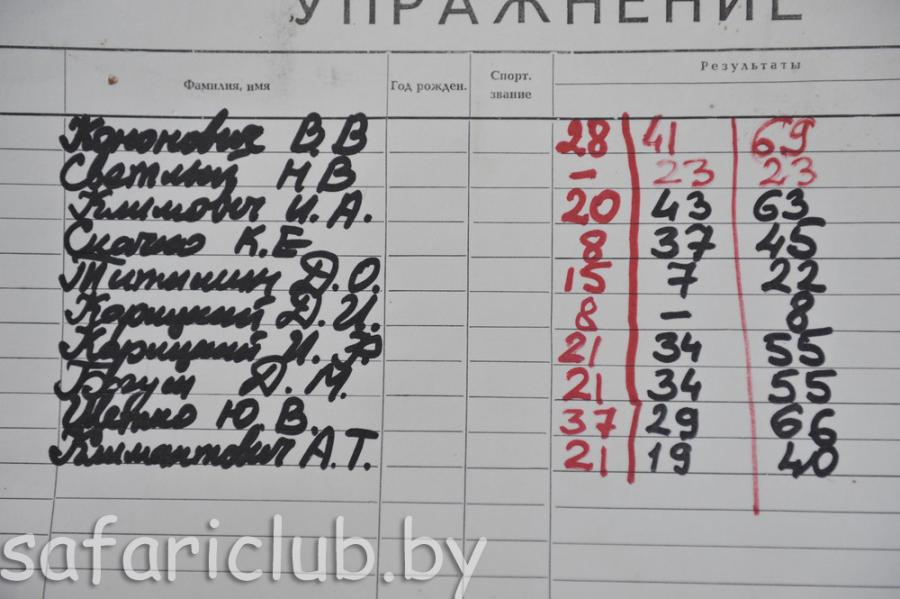 УПРАЖНЕНИЕ
Фамилия, имя Год рожден. Спорт. звание Результаты
Кононович В.В 28 41 69
Светлый Н В - 23 23
Климович И.А. 20 43 63
Скачко К.Е 8 37 45
Титянин Д.О. 15 7 22
Карицкий Д.И. 8 - 8
Карицкий И. Ф 21 34 55
Бегун Д.М. 21 34 55
Щетко Ю.В. 37 29 66
Климантович А.Т. 21 19 40
safariclub.by